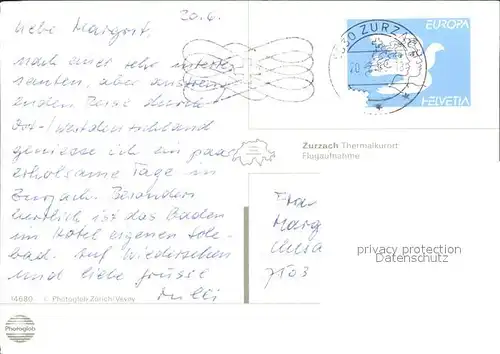 20.6.
Liebe Margrit,
nach einer sehr interes-
santen, aber anstreng-
enden Reise durch
Ost-/Westdeutschland
geniesse ich ein paar
erholsame Tage in
Zurzach. Besonders
herrlich ist das Baden
im Hotel eigenen Sole-
bad. Auf Wiedersehen
und liebe Grüsse
EUROPA
HELVETIA
ZURZACH
Zurzach Thermalkurort
Flugaufnahme
Frau
Marg
7103
privacy protection
Datenschutz
14680 Photoglob, Zürich/Vevey
Photoglob